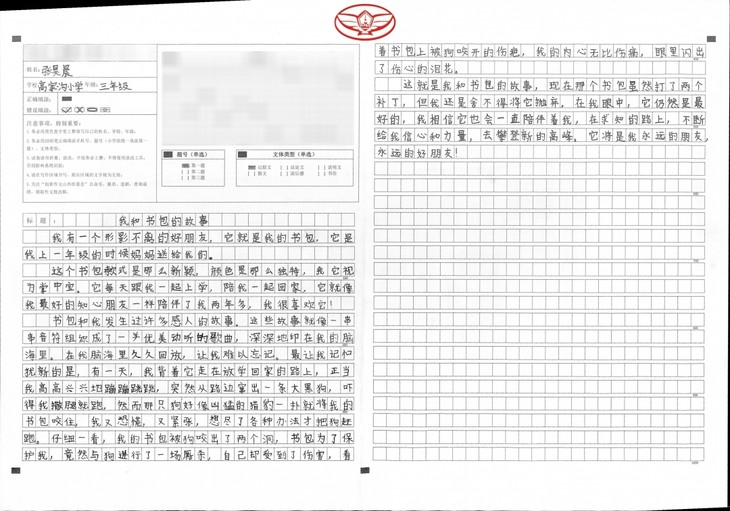 姓名：张昊晨
学校：高家沟小学 年级：三年级
正确填涂：
错误填涂：
注意事项，特别重要：
题号（单选）
第一题
第二题
第三题
文体类型（单选）
记叙文 议论文 说明文
散文 读后感 书信
标题：我和书包的故事
我有一个形影不离的好朋友，它就是我的书包，它是
我上一年级的时候妈妈送给我的。
这个书包款式是那么新颖，颜色是那么独特，我它视
为掌中宝。它每天跟我一起上学，陪我一起回家，它就像
我最好的知心朋友一样陪伴了我两年多，我很喜欢它！
书包和我发生过许多感人的故事。这些故事就像一串
串音符组成了一首优美动听的歌曲，深深地印在我的脑
海里。在我脑海里久久回放，让我难以忘记。最让我记忆
犹新的是，有一天，我背着它走在放学回家的路上，正当
我高高兴兴地蹦蹦跳跳，突然从路边窜出一条大黑狗，吓
得我撒腿就跑，然而那只狗好像凶猛的猎豹一扑就将我的
书包咬住，我又恐慌，又紧张，想尽了各种办法才把狗赶
跑。仔细一看，我的书包被狗咬出了两个洞，书包为了保
护我，竟然与狗进行了一场厮杀，自己却受到了伤害，看
着书包上被狗咬开的伤疤，我的内心无比伤痛，眼里闪出
了伤心的泪花。
这就是我和书包的故事，现在那个书包虽然打了两个
补丁，但我还是舍不得将它抛弃，在我眼中，它仍然是最
好的，我相信它也会一直陪伴着我，在求知的路上，不断
给我信心和力量，去攀登新的高峰。它将是我永远的朋友，
永远的好朋友！